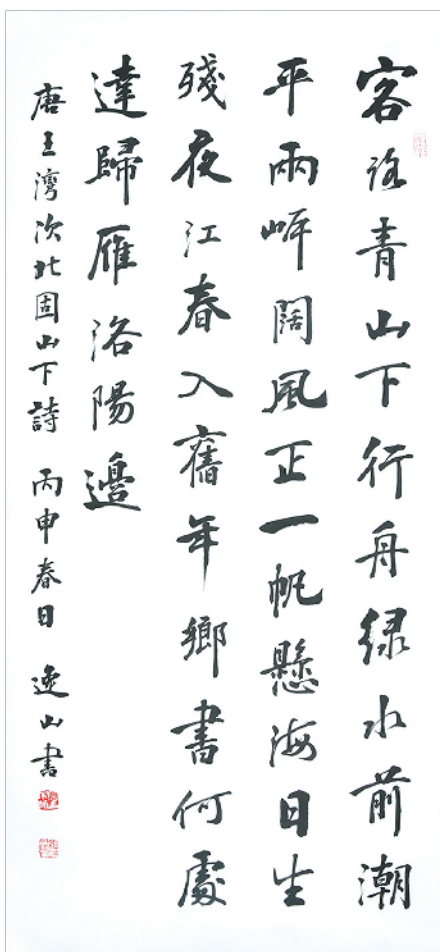 客路青山下行舟緑水前潮
平兩岸闊風正一帆懸海日生
殘夜江春入舊年鄉書何處
達歸雁洛陽邊
唐王灣次北固山下詩 丙申春日 逸山書